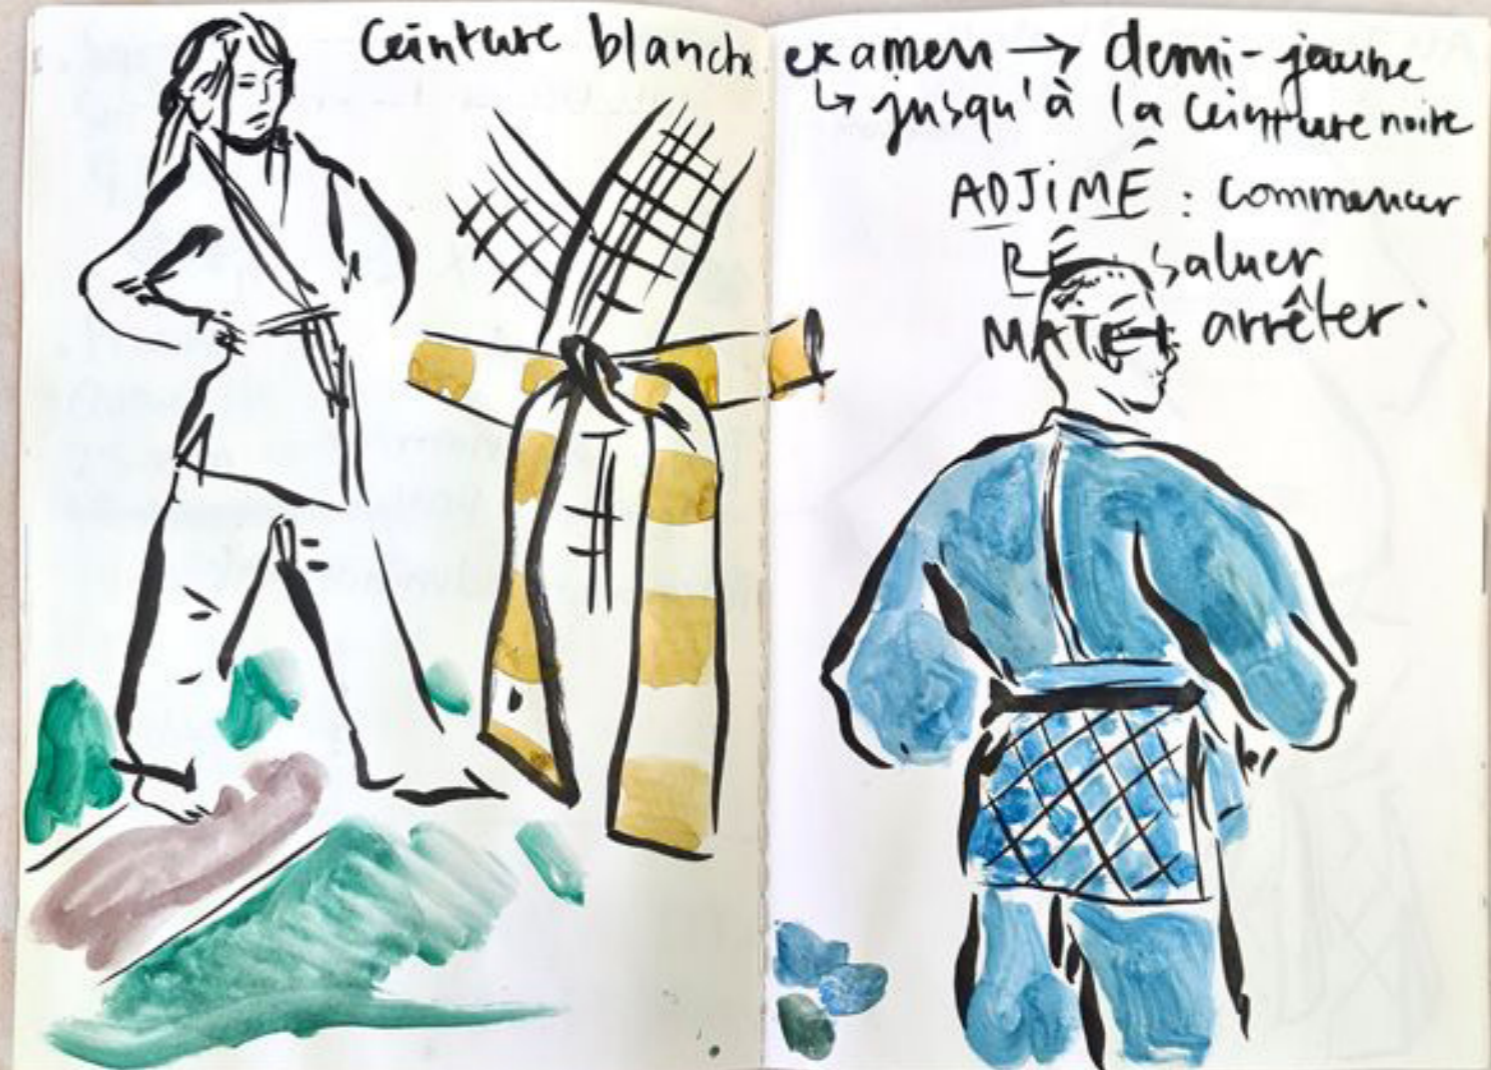 Ceinture blanche
examen → demi-jaune
↳ jusqu'à la ceinture noire
ADJIMÉ : commencer
RÉ : saluer
MATÉ : arrêter